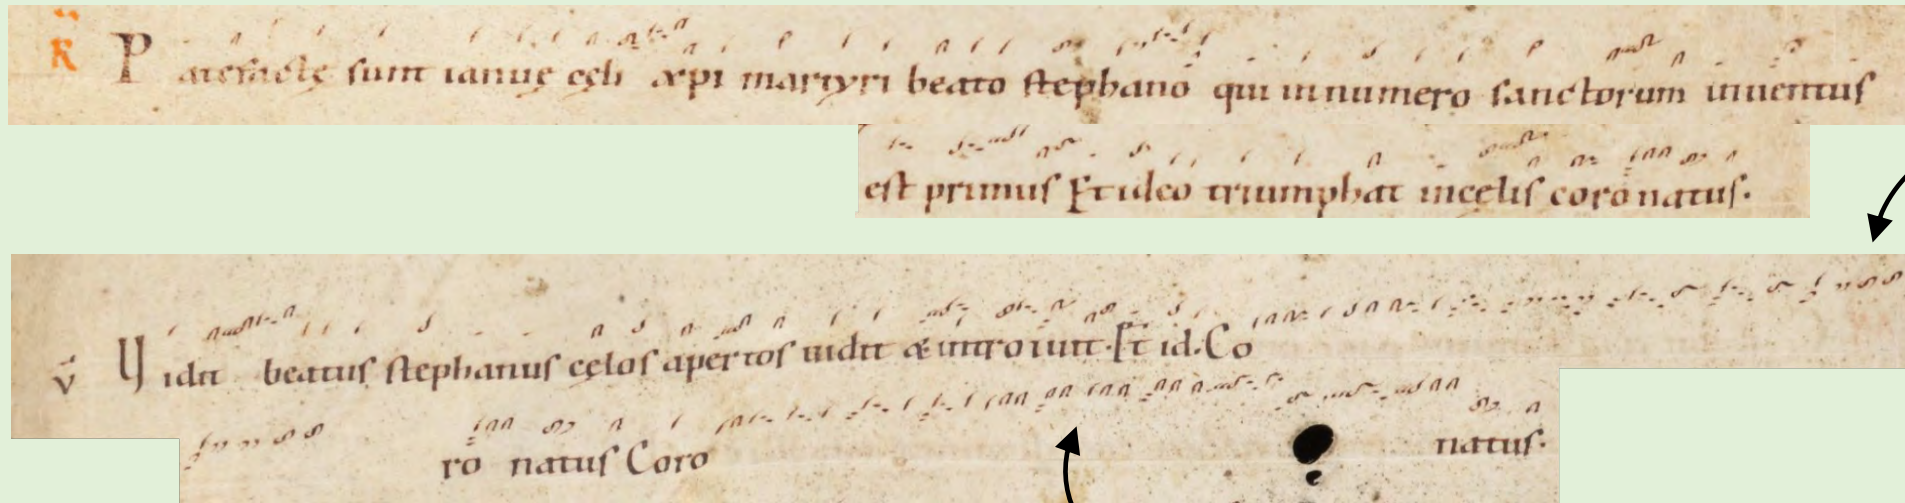 R Patefactę sunt ianuę cęli & xpi martyri beato stephano qui in numero sanctorum inuentus
est primus Et ideo triumphat in celis coronatus.
v Uidit beatus stephanus cęlos apertos uidit & introiuit. Et id. Co
ro natus Coro natus.